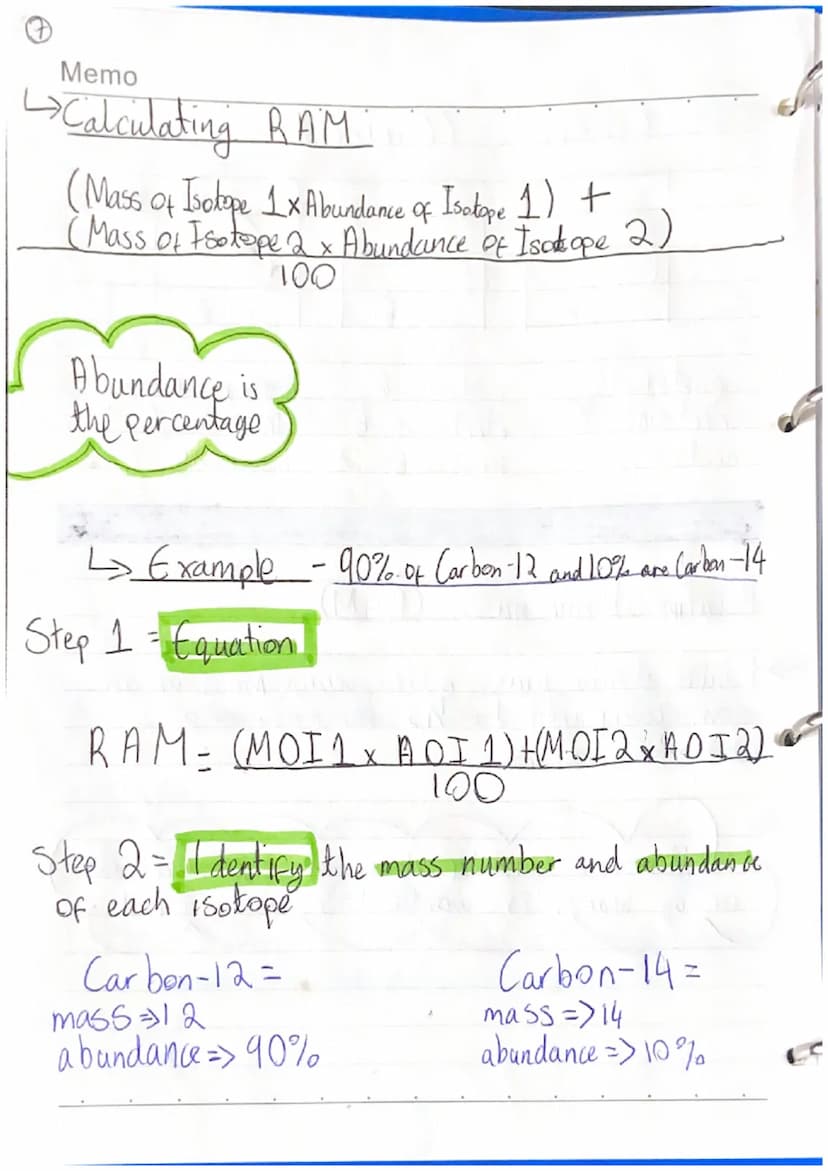 7
Memo
↳ Calculating RAM
(Mass of Isotope 1 x Abundance of Isotope 1) +
(Mass of Isotope 2 x Abundance of Isotope 2)
100
Abundance is
the percentage
↳ Example - 90% of Carbon-12 and 10% are Carbon-14
Step 1 = Equation
RAM = (MOI 1 x AOI 1)+(MOI 2 x AOI 2)
100
Step 2 = Identify the mass number and abundance
of each isotope
Carbon-12 =
mass => 12
abundance => 90%
Carbon-14 =
mass => 14
abundance => 10%